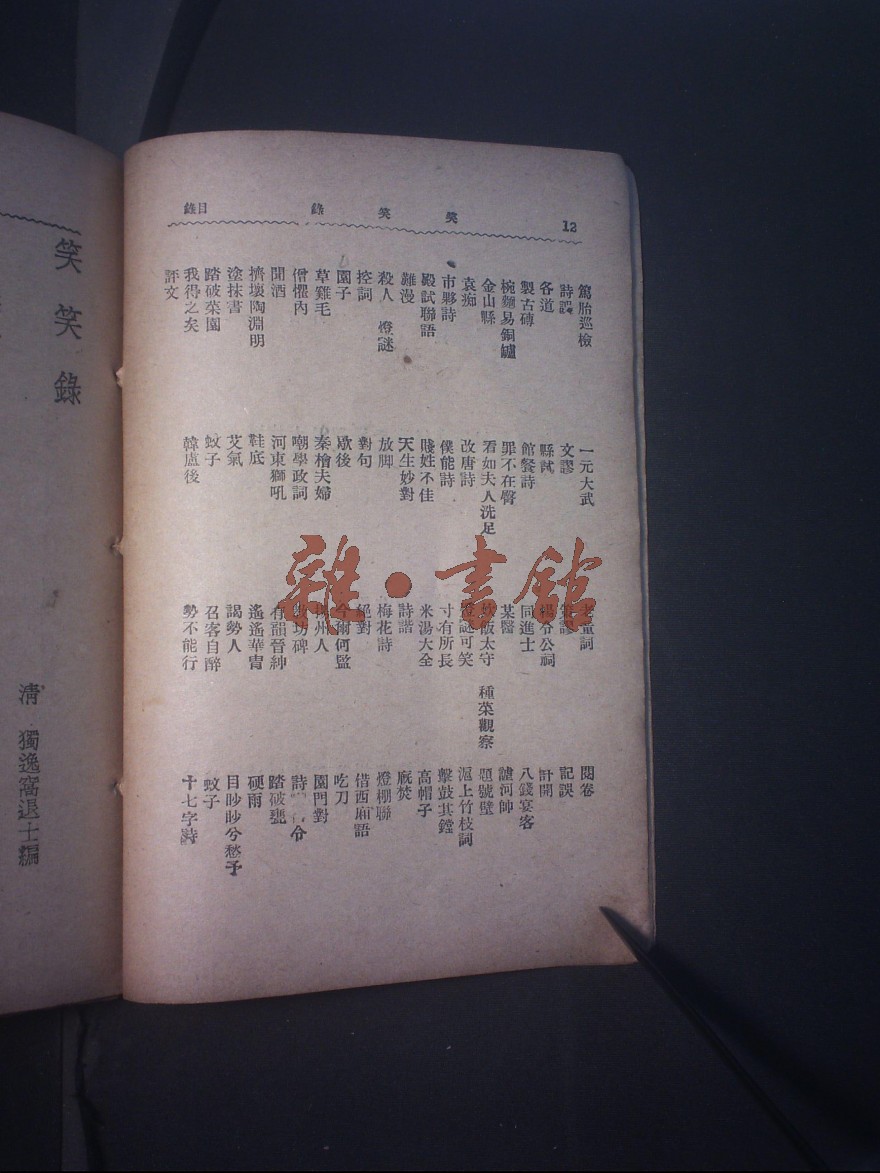 12
笑笑錄
目錄
篤胎巡檢
詩誤
各道
製古磚
椀麵易銅罏
金山縣
袁痴
市夥詩
殿試聯語
難漫
殺人 燈謎
控詞
園子
草雞毛
僧懼內
聞酒
擠壞陶淵明
塗抹書
踏破菜園
我得之矣
評文
一元大武
文謬
縣試
館餐詩
罪不在臀
看如夫人洗足
改唐詩
僕能詩
賤姓不佳
天生妙對
放脚
對句
歇後
秦檜夫婦
嘲學政詞
河東獅吼
鞋底
艾氣
蚊子
韓盧後
老童詞
公祠
同進士
某醫
炊飯太守 種菜觀察
燈謎可笑
寸有所長
米湯大全
詩諧
梅花詩
絕對
今爾何監
揚州人
教坊碑
有韻晉紳
遙遙華胄
謁勢人
召客自醉
勢不能行
閱卷
記誤
計開
八錢宴客
謔河帥
題號壁
滬上竹枝詞
擊鼓其鏜
高帽子
廐焚
燈棚聯
借西廂語
吃刀
園門對
詩 令
踏破甕
硬雨
目眇眇兮愁予
蚊子
十七字詩
雜·書館
笑笑錄
清 獨逸窩退士編